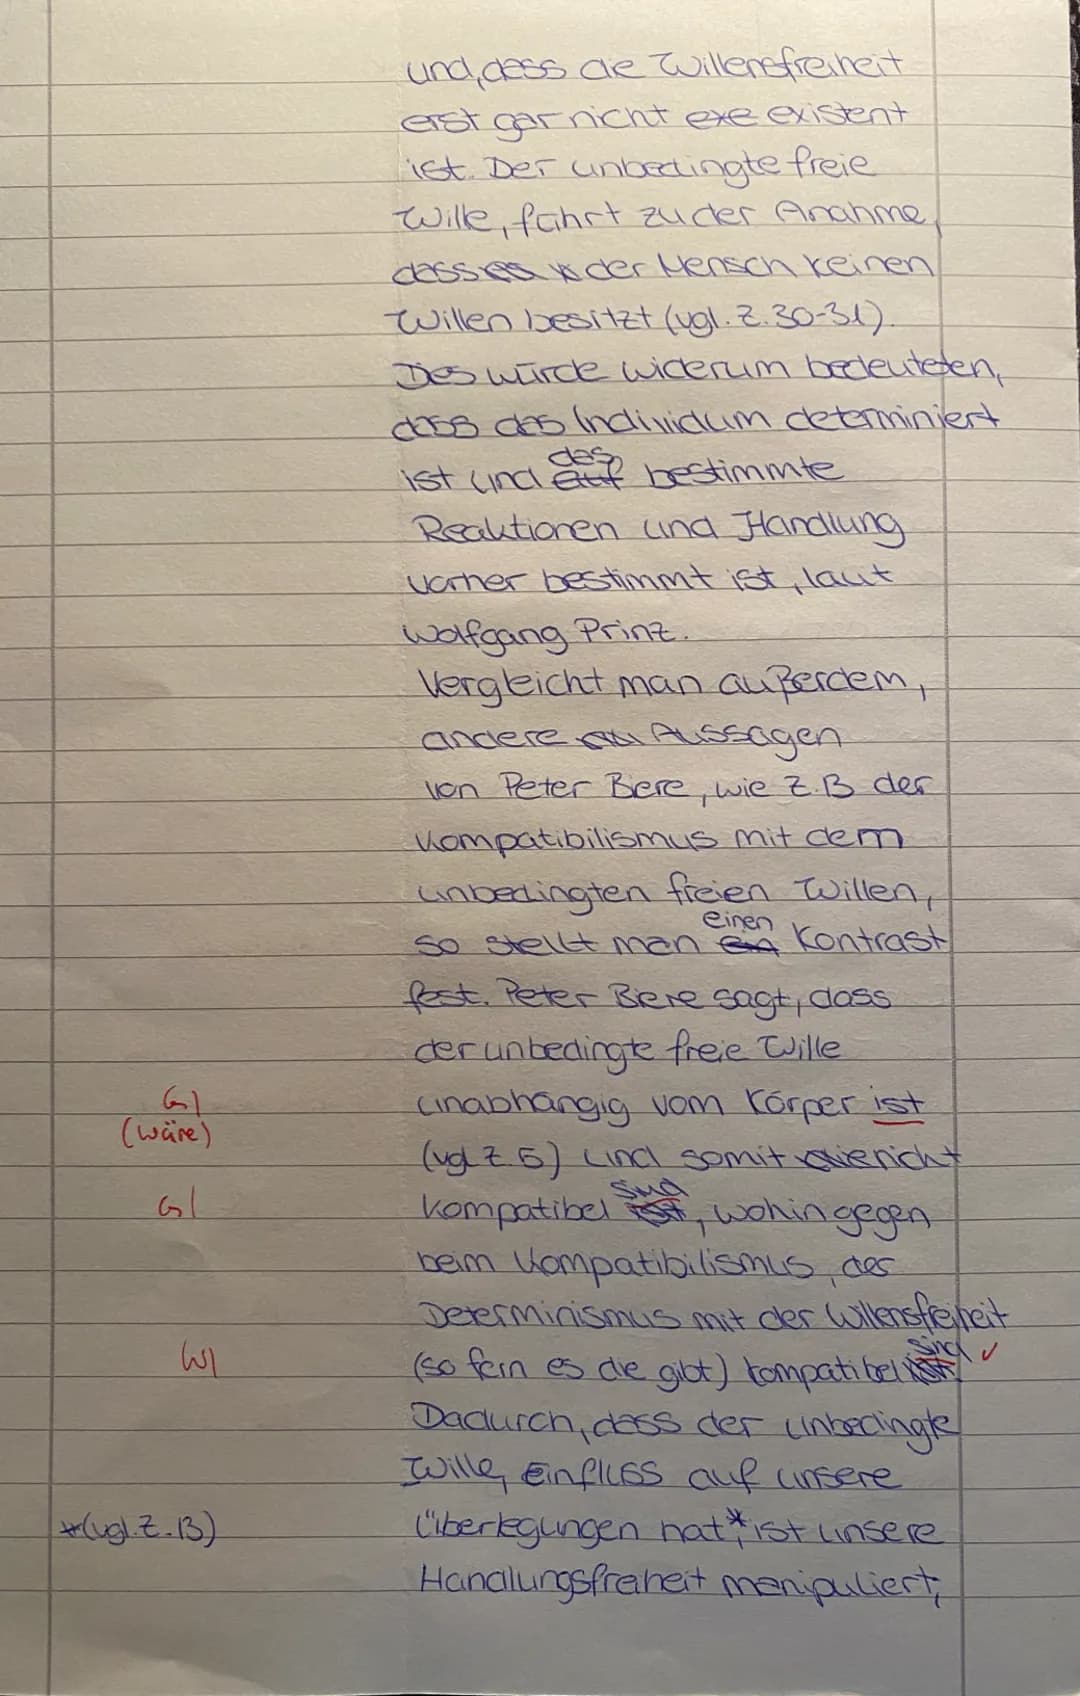 und, dass die Willensfreiheit
erst gar nicht exe existent
ist. Der unbedingte freie
Wille, führt zu der Anahme,
dass es der Mensch keinen
Willen besitzt (vgl. Z. 30-31).
Dies würde widerum bedeuteten,
dass das Individum determiniert
ist und das bestimmte
Reaktionen und Handlung
vorher bestimmt ist, laut
Wolfgang Prinz.
Vergleicht man außerdem,
andere Aussagen
von Peter Biere, wie z.B der
Kompatibilismus mit dem
unbedingten freien Willen,
so stellt man einen Kontrast
fest. Peter Biere sagt, dass
der unbedingte freie Wille
G| unabhängig vom Körper ist
(wäre) (vgl Z. 5) und somit nicht
G| kompatibel sind, wohingegen
beim Kompatibilismus, der
Determinismus mit der Willensfreiheit
W| (so fern es die gibt) kompatibel sind ✓
Dadurch, dass der unbedingte
Wille, Einfluss auf unsere
*(vgl. Z. 13) Überlegungen hat*, ist unsere
Handlungsfreiheit manipuliert;